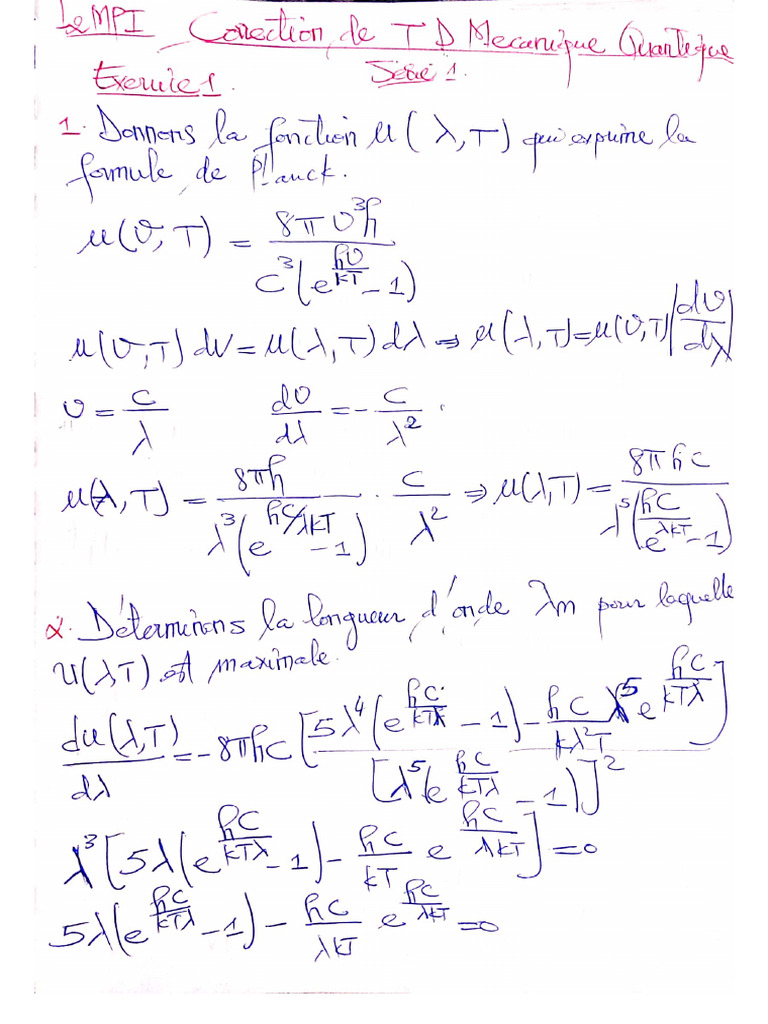 LeMPI Correction de TD Mecanique Quantique
Exercice 1. Série 1.
1. Donnons la fonction u(λ,T) qui exprime la
formule de Planck.
u(υ,T) = 8πυ³h / c³(e^(hυ/kT) - 1)
u(υ,T) dν = u(λ,T) dλ ⇒ u(λ,T) = u(υ,T) |dυ/dλ|
υ = c/λ dυ/dλ = - c/λ² .
u(λ,T) = 8πh / λ³(e^(hc/λkT) - 1) · c/λ² ⇒ u(λ,T) = 8πhc / λ⁵(e^(hc/λkT) - 1)
2. Déterminons la longueur d'onde λm pour laquelle
U(λT) est maximale.
du(λ,T)/dλ = -8πhc [5λ⁴(e^(hc/kTλ) - 1) - hc/kλ²T λ⁵ e^(hc/kTλ)] / [λ⁵(e^(hc/kTλ) - 1)]²
λ³[5λ(e^(hc/kTλ) - 1) - hc/kT e^(hc/λkT)] = 0
5λ(e^(hc/kTλ) - 1) - hc/λkT e^(hc/λkT) = 0